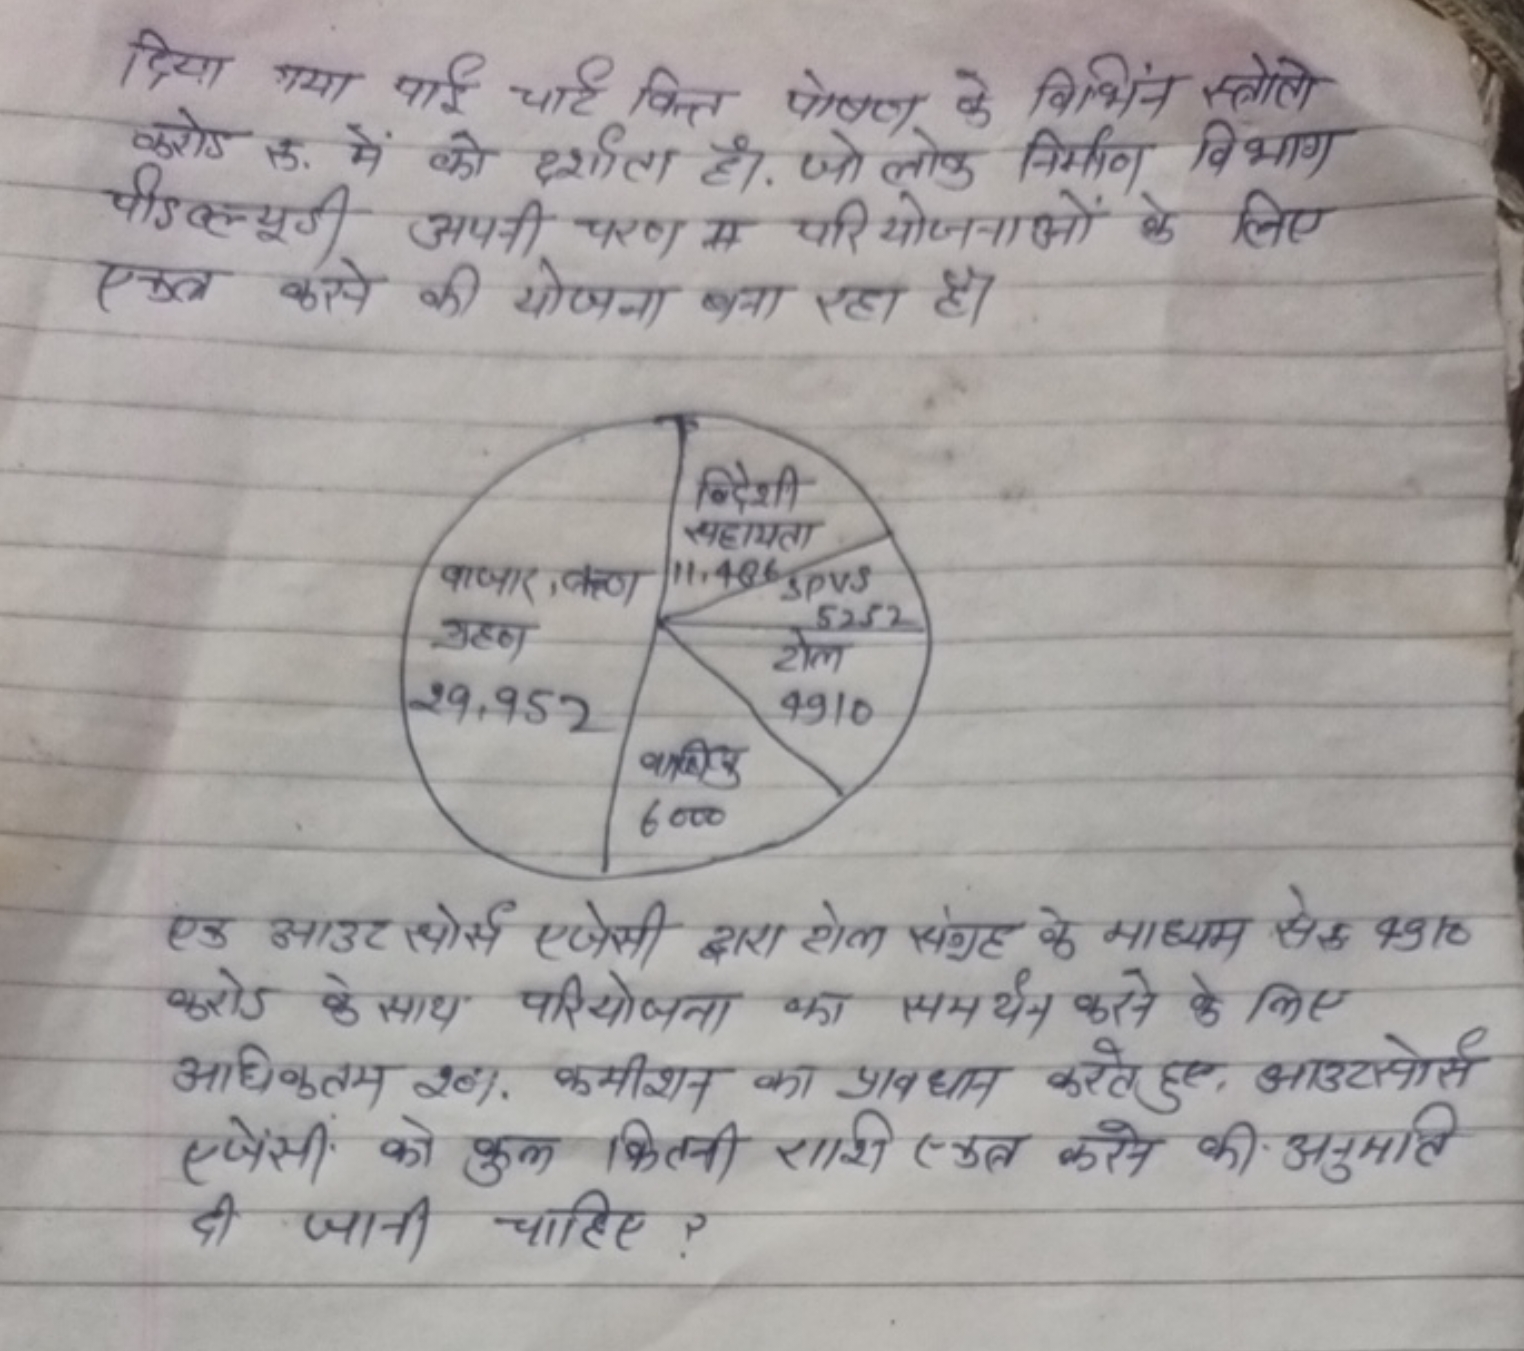 दिया गया पाई चार्ट वित्त पोषण के विभिंन स्त्रोतो
करोड रू. में को दर्शाता है। जो लोक निर्माण विभाग
पीडब्ल्यूडी अपनी चरण म परियोजनाओं के लिए
एकत्र करने की योजना बना रहा है।
विदेशी
सहायता
11,486
SPVS
5252
बाजार, ऋण
ग्रहण
29,952
टोल
4910
वार्षिक
6000
एक आउट स्पोर्स एजेसी द्वारा टोल संग्रह के माध्यम से रू 4910
करोड के साथ परियोजना का समर्थन करने के लिए
अधिकतम कमीशन का प्रावधान करते हुए, आउटस्पोर्स
एजेंसीं को कुल कितनी राशि एकत्र करने की अनुमति
दी जानी चाहिए ?